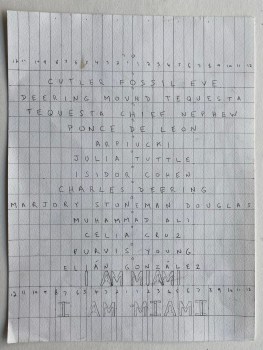 CUTLER FOSSIL EVE
DEERING MOUND TEQUESTA
TEQUESTA CHIEF NEPHEW
PONCE DE LEON
JULIA TUTTLE
ISIDOR COHEN
CHARLES DEERING
MARJORY STONEMAN DOUGLAS
MUHAMMAD ALI
CELIA CRUZ
PURVIS YOUNG
ELIÁN GONZÁLEZ
I AM MIAMI
I AM MIAMI